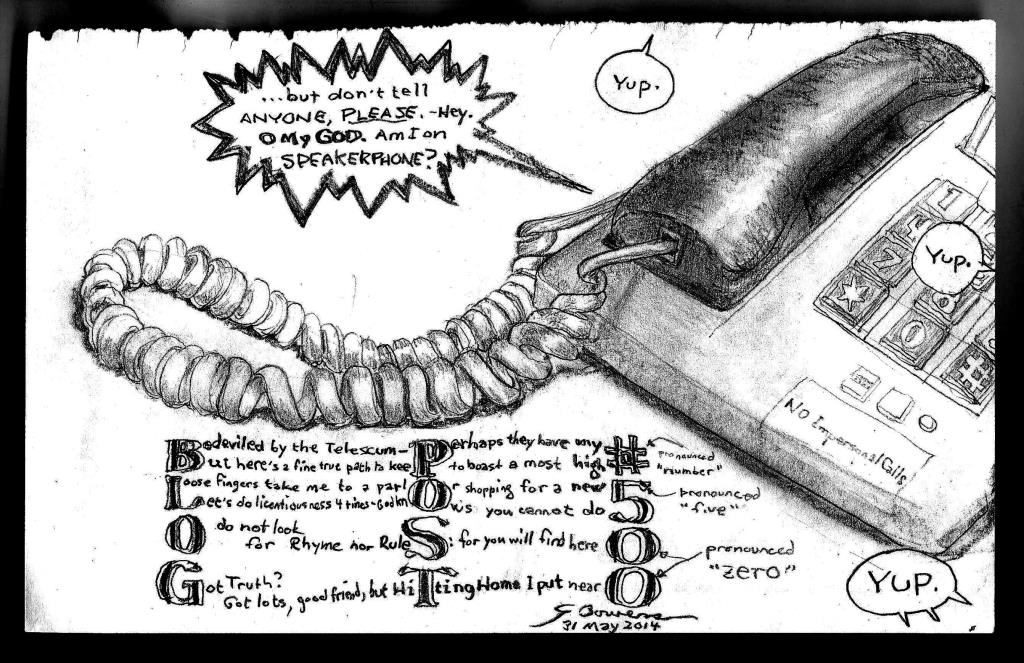 ...but don't tell
ANYONE, PLEASE. -Hey.
O My GOD. Am I on
SPEAKERPHONE?
Yup.
Yup.
1
*
0
#
No Impersonal Calls
Bedeviled by the Telescum- Perhaps they have my #
But here's a fine true path to keep to boast a most high
pronounced
"number"
Loose fingers take me to a parl Or shopping for a new 5
Let's do licentiousness 4 times - God knows you cannot do
pronounced
"five"
O do not look
for Rhyme nor Rules: for you will find here 0
pronounced
"zero"
Got Truth?
Got lots, good friend, but Hitting Home I put near 0
YUP.
G Bowers
31 May 2014